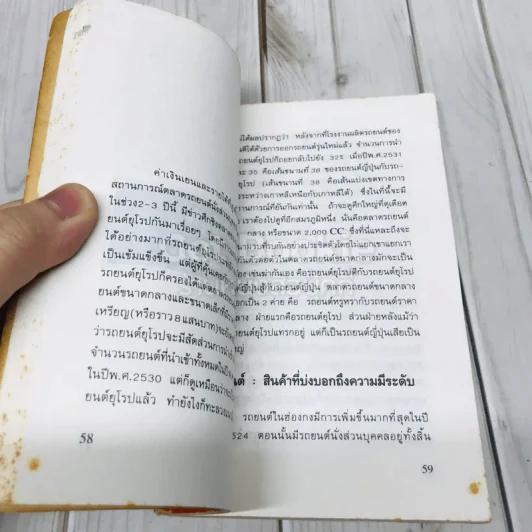 ค่าเงินเยนและราคา
สถานการณ์ตลาดรถยนต์นั่ง
ในช่วง2-3 ปีนี้ มีข่าวศึกชิง
ยนต์ยุโรปกันมาเรื่อยๆ โดย
ได้อย่างมากที่รถยนต์ยุโรป
เป็นเข้มแข็งขึ้น แต่ผู้ที่คุ้นเคย
รถยนต์ยุโรปก็ครองได้แต่ตลาด
ยนต์ขนาดกลางและขนาดเล็กที่
เหรียญ(หรือราว 8 แสนบาท)
ว่ารถยนต์ยุโรปจะมีสัดส่วนการนำ
จำนวนรถยนต์ที่นำเข้าทั้งหมดใน
ในปีพ.ศ.2530 แต่ก็ดูเหมือนว่า
ยนต์ยุโรปแล้ว ทำยังไงก็ทะลวง
58
ได้ผลปรากฏว่า หลังจากที่โรงงานผลิตรถยนต์ของ
ได้ด้วยการออกรถยนต์รุ่นใหม่แล้ว จำนวนการนำ
ยนต์ยุโรปก็ถอยกลับไปยัง 32% เมื่อปีพ.ศ.2531
35 คือเส้นขนานที่ 38 ของรถยนต์ญี่ปุ่นกับรถ
(เส้นขนานที่ 38 คือเส้นแบ่งเขตทางการ
ระหว่างเกาหลีเหนือกับเกาหลีใต้) ซึ่งในที่นี้จะมี
านการณ์ที่ยันกันเท่านั้น ถ้าจะดูศึกใหญ่ที่ดุเดือด
เราต้องไปดูที่อีกสมรภูมิหนึ่ง นั่นคือตลาดรถยนต์
กลาง หรือขนาด 2,000 CC. ซึ่งที่นี่แหละถึงจะ
รบกันอย่างประชิดตัวโดยไม่แยกเขาแยกเรา
กันตัวต่อตัวในตลาดรถยนต์ขนาดกลางมักจะเป็น
เช่นฆ่ากันเอง คือรถยนต์ยุโรปตีกับรถยนต์ยุโรป
ญี่ปุ่นสู้กับรถยนต์ญี่ปุ่น ตลาดรถยนต์ขนาดกลาง
ยกเป็น 2 ค่าย คือ รถยนต์หรูหรากับรถยนต์ราคา
ฝ่ายแรกคือรถยนต์ยุโรป ส่วนฝ่ายหลังแม้ว่า
ยนต์ยุโรปแทรกอยู่ แต่ก็เป็นรถยนต์ญี่ปุ่นเสียเป็น
ใหญ่
นต์ : สินค้าที่บ่งบอกถึงความมีระดับ
รถยนต์ในฮ่องกงมีการเพิ่มขึ้นมากที่สุดในปี
524 ตอนนั้นมีรถยนต์นั่งส่วนบุคคลอยู่ทั้งสิ้น
59